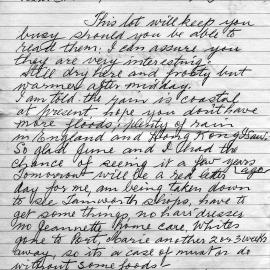 This lot will keep you
busy should you be able to
read them. I can assure you
they are very interesting.
Still dry here and frosty but
warmer after midday.
I am told the rain is coastal
at present, hope you don't have
more floods, plenty of rain
in England and Hong Kong I saw.
So glad June and I had the
chance of seeing it a few years
ago
Tomorrow will be a red letter
day for me, am being taken down
to see Tamworth shops, have to
get some things, no hairdresser
no Jeannette home care. Whites
gone to Port, Marie another 2 or 3 weeks
away, so its a case of must or do
without some foods!